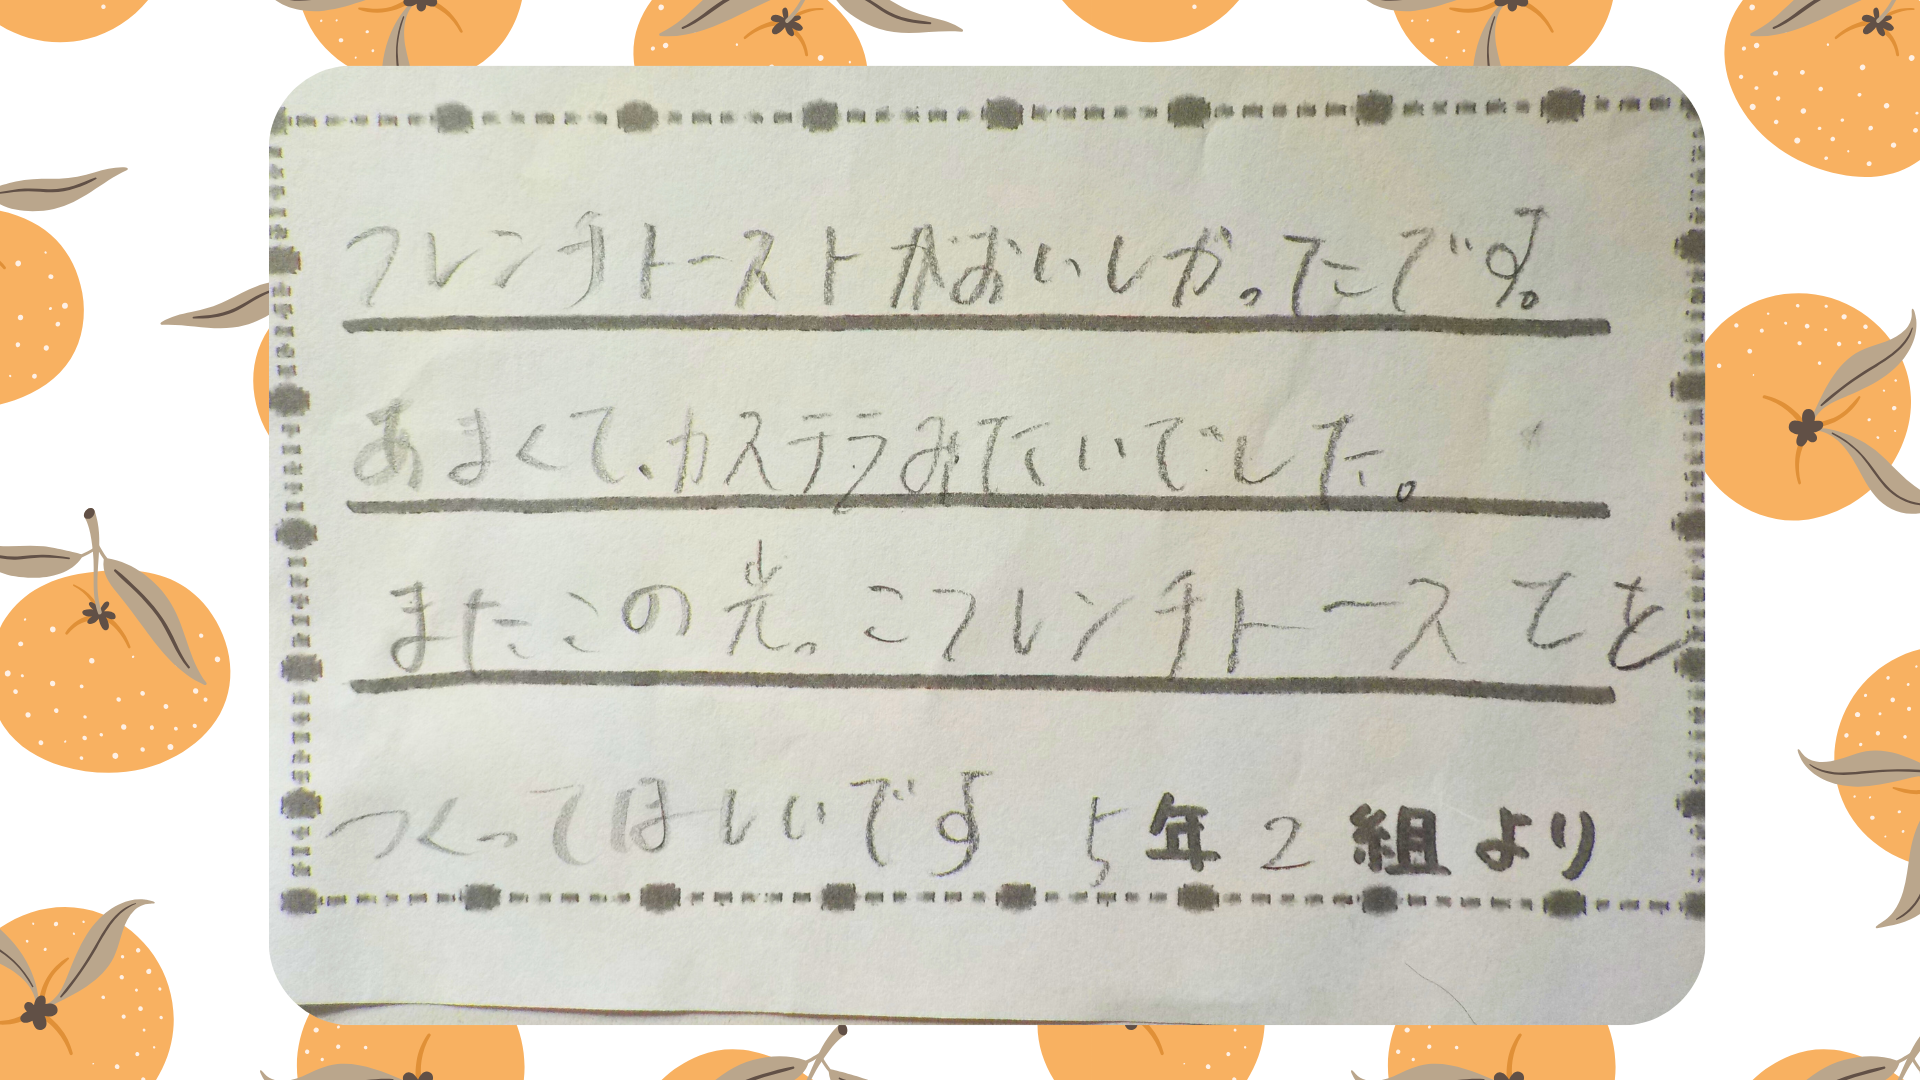 フレンチトーストがおいしかったです。
あまくて、カステラみたいでした。
またこの光っこフレンチトースてを
つくってほしいです 5年2組より